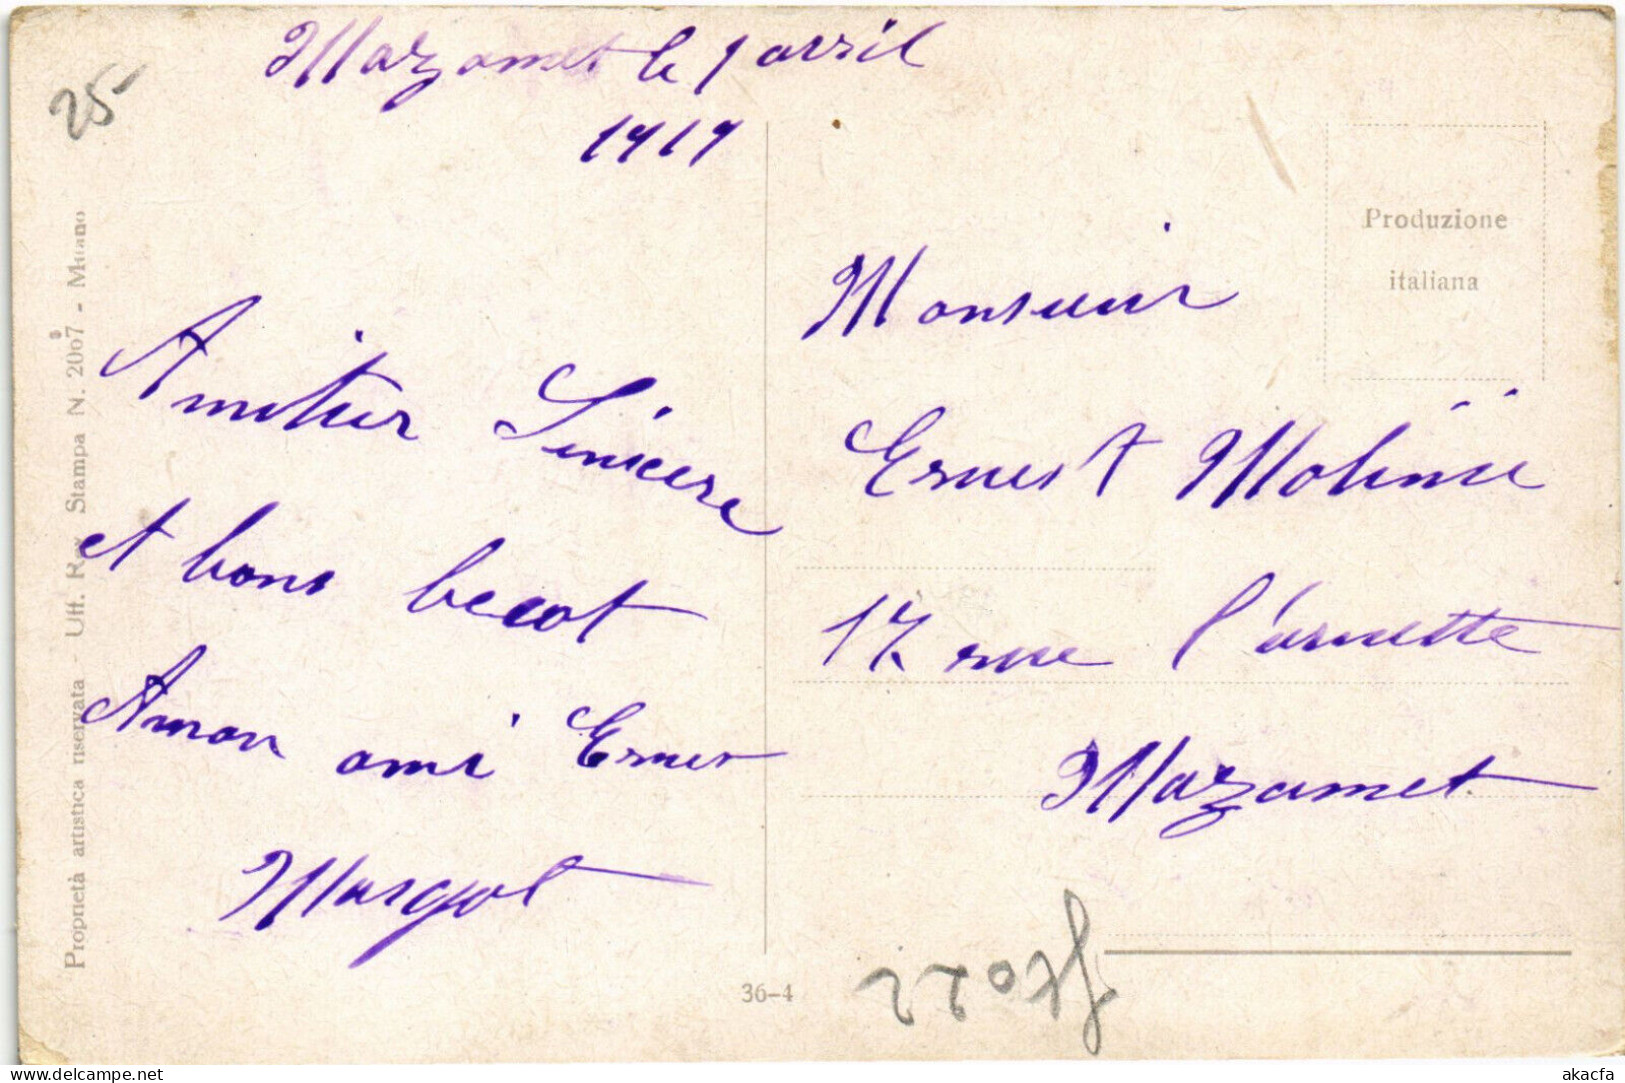 Mazamet le 1 avril
1919
25
Amitier Sincere
et bons becot
Amon ami Ernes
Margot
Monsieur
Ernest Molinie
17 rue l'arnette
Mazamet
Produzione
italiana
Proprietà artistica riservata - Uff. Rev. Stampa N. 2067 - Milano
36-4
www.delcampe.net
akacfa